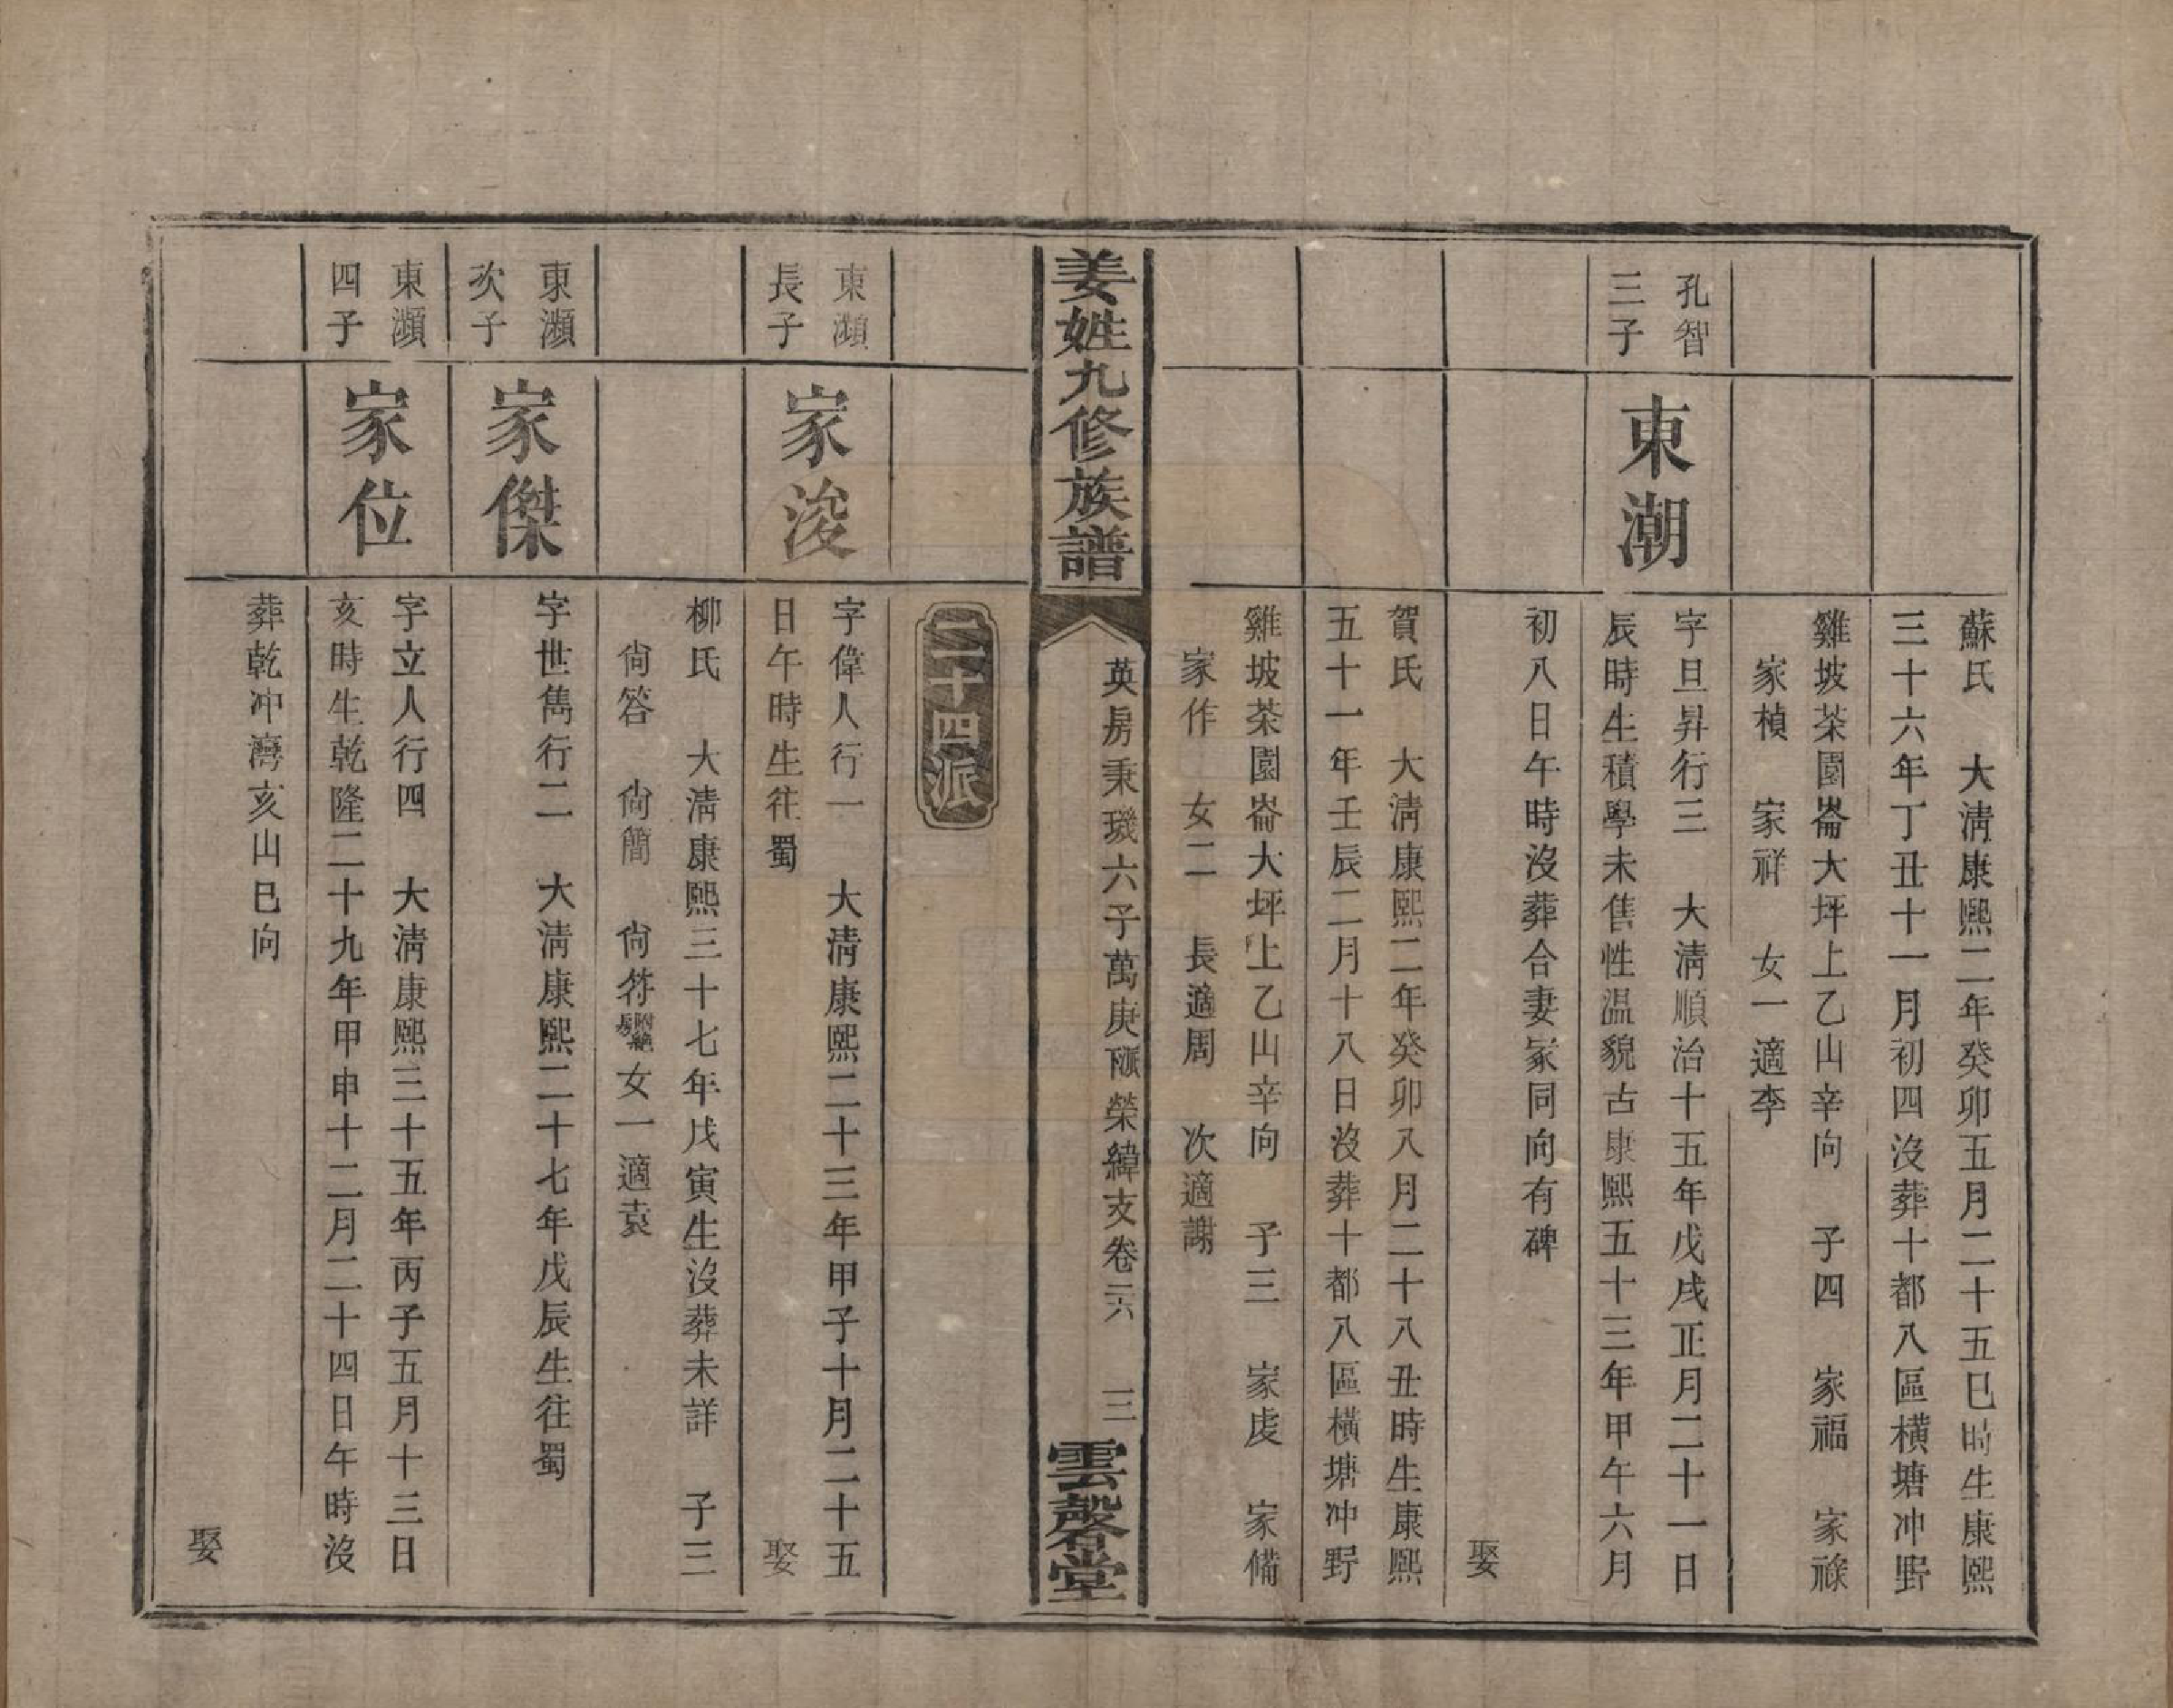 蘇氏　大淸康熙二年癸卯五月二十五巳時生康熙
三十六年丁丑十一月初四沒葬十都八區橫塘冲野
雞坡茶園崙大坪上乙山辛向　子四　家福　家祿
家楨　家祥　女一適李
孔智
三子
東潮
字旦昇行三　大淸順治十五年戊戌正月二十一日
辰時生積學未售性温貌古康熙五十三年甲午六月
初八日午時沒葬合妻冢同向有碑
娶
賀氏　大淸康熙二年癸卯八月二十八丑時生康熙
五十一年壬辰二月十八日沒葬十都八區橫塘冲野
雞坡茶園崙大坪上乙山辛向　子三　家虔　家備
家作　女二　長適周　次適謝
姜姓九修族譜
英房秉璣六子萬庚颐榮緯支卷三六　三
雲磬堂
二十四派
東瀕
長子
家浚
字偉人行一　大淸康熙二十三年甲子十月二十五
日午時生往蜀
娶
柳氏　大淸康熙三十七年戊寅生沒葬未詳　子三
尙答　尙簡　尙符附絕房　女一適袁
東瀕
次子
家傑
字世雋行二　大淸康熙二十七年戊辰生往蜀
東瀕
四子
家位
字立人行四　大淸康熙三十五年丙子五月十三日
亥時生乾隆二十九年甲申十二月二十四日午時沒
葬乾冲灣亥山巳向
娶